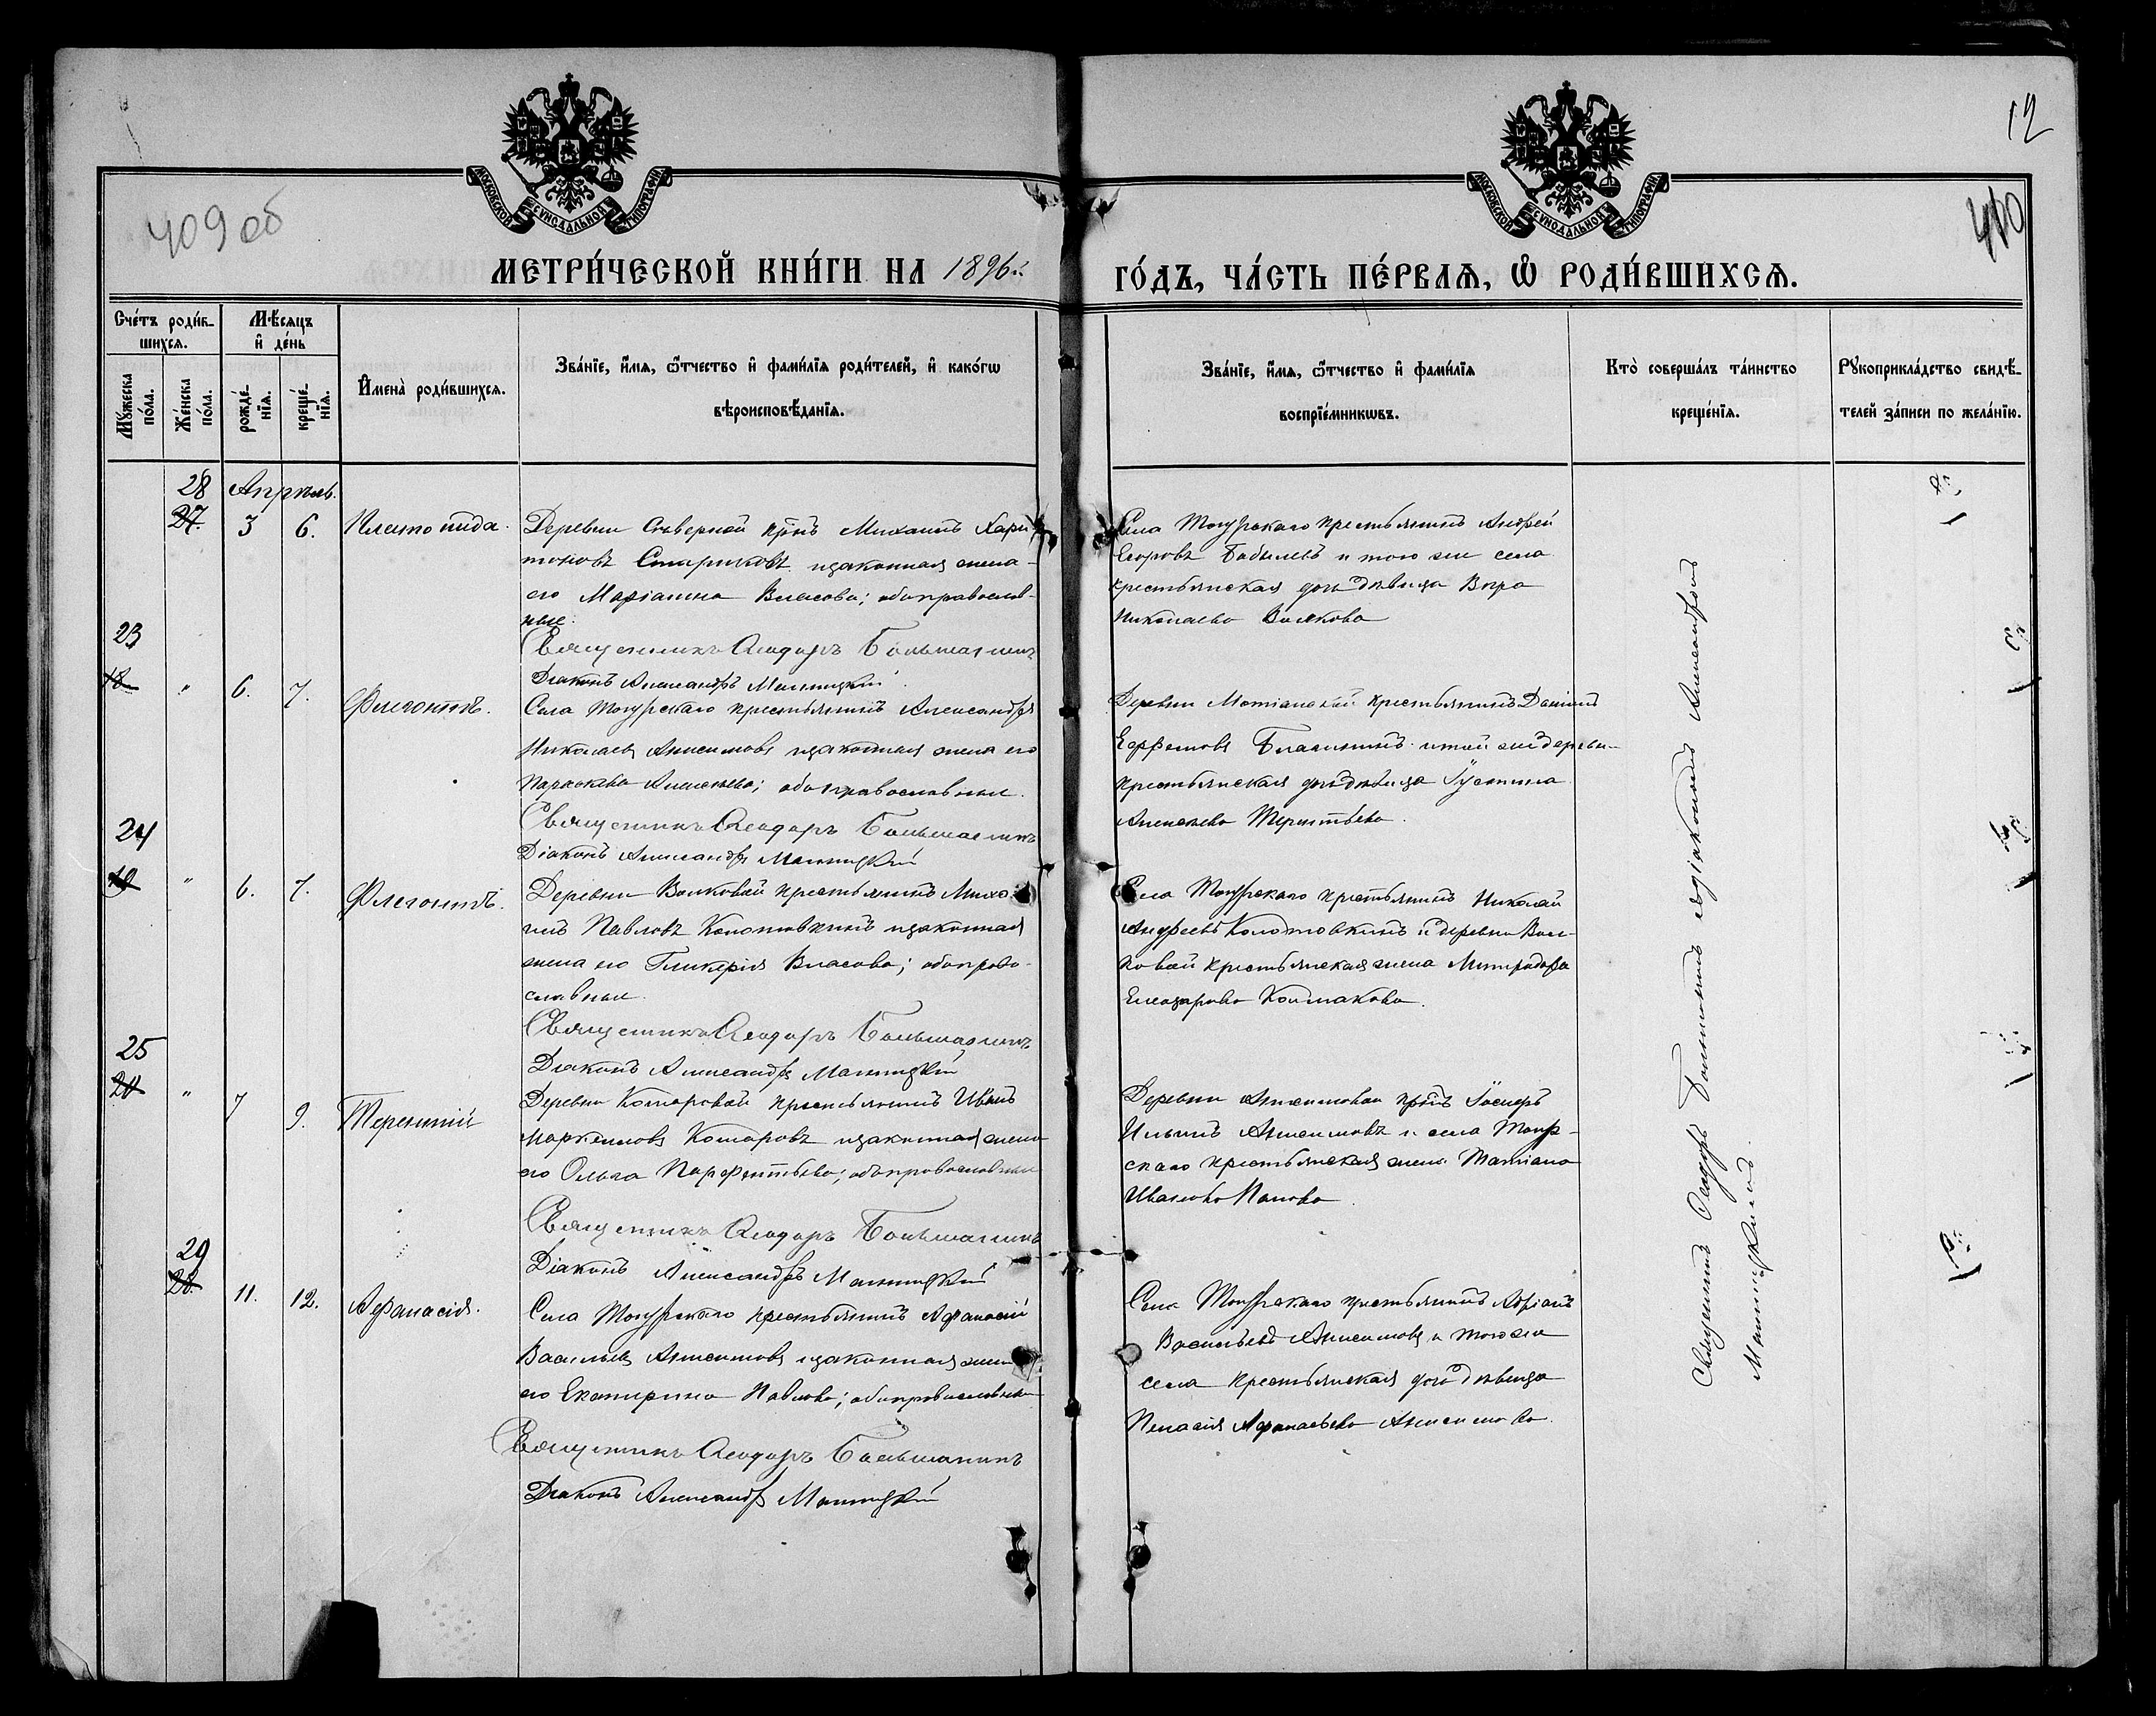 12
409 об
410
МОСКОВСКОЙ СѴНОДАЛЬНОЙ ТИПОГРАФІИ
МОСКОВСКОЙ СѴНОДАЛЬНОЙ ТИПОГРАФІИ
МЕТРИ́ЧЕСКОЙ КНИ́ГИ НА 1896й
ГО́ДЪ, ЧА́СТЬ ПЕ́РВАѦ, Ѡ РОДИ́ВШИХСѦ.
Сче́тъ роди́в-
шихсѧ.
Мꙋ́жеска по́ла.
Же́нска по́ла.
Мѣ́сѧцъ
и҆ де́нь
рожде́-
нїѧ.
креще́-
нїѧ.
И҆мена̀ роди́вшихсѧ.
Зва́нїе, и҆́мѧ, ѻ҆́тчество и҆ фами́лїѧ роди́телей, и҆ како́гѡ
вѣроисповѣ́данїѧ.
Зва́нїе, и҆́мѧ, ѻ҆́тчество и҆ фами́лїѧ
воспрїе́мникѡвъ.
Кто̀ соверша́лъ та́инство
креще́нїѧ.
Рꙋкоприкла́дство свидѣ́-
телей за́писи по жела́нїю.
28 Апрѣль.
27. 3 6. Платонида.
Деревни Сѣверной кр̃нъ Михаилъ Хари-
тоновъ Стариковъ и законная жена
его Маріанна Власова; оба православ-
ные.
Священникъ Ѳеодоръ Большанинъ
Діаконъ Александръ Мальмицкій
Села Тогурскаго крестьянинъ Андрей
Егоровъ Бобылевъ и того же села
крестьянская дочь дѣвица Вѣра
Николаева Волкова
23
18 " 6. 7. Флегонтъ.
Села Тогурскаго крестьянинъ Александръ
Николаевъ Анисимовъ и законная жена его
Параскева Алексѣева; оба православные.
Священникъ Ѳеодоръ Большанинъ
Діаконъ Александръ
Деревни крестьянинъ Даніилъ
и той же деревни
крестьянская дочь дѣвица Іустина
Алексѣева Терентьева.
24
19 " 6. 7. Флегонтъ.
Деревни Волковой крестьянинъ Миха-
илъ Павловъ Колотовкинъ и законная
жена его Гликерія Власова; оба право-
славные.
Священникъ Ѳеодоръ Большанинъ
Діаконъ Александръ
Села Тогурскаго крестьянинъ Николай
Андреевъ Колотовкинъ и деревни Вол-
ковой крестьянская жена Митродора
Елеазарова Колмакова.
25
20 " 7 9. Терентій
Деревни Комаровой крестьянинъ Иванъ
Маркелловъ Комаровъ и законная жена
его Ольга Парфентьева; оба православные
Священникъ Ѳеодоръ Большанинъ
Діаконъ Александръ
Деревни Анисимовой кр̃нъ Іосифъ
Ильинъ Анисимовъ и села Тогур-
скаго крестьянская жена Татіана
Иванова Попова.
29
28. 11. 12. Аѳанасія.
Села Тогурскаго крестьянинъ Аѳанасій
Васильевъ Анисимовъ и законная жена
его Екатерина Павлова; оба православные
Священникъ Ѳеодоръ Большанинъ
Діаконъ Александръ
Села Тогурскаго крестьянинъ Адріанъ
Васильевъ Анисимовъ и того же
села крестьянская дочь дѣвица
Пелагія Аѳанасьева Анисимова.
Священникъ Ѳеодоръ съ діакономъ Александромъ